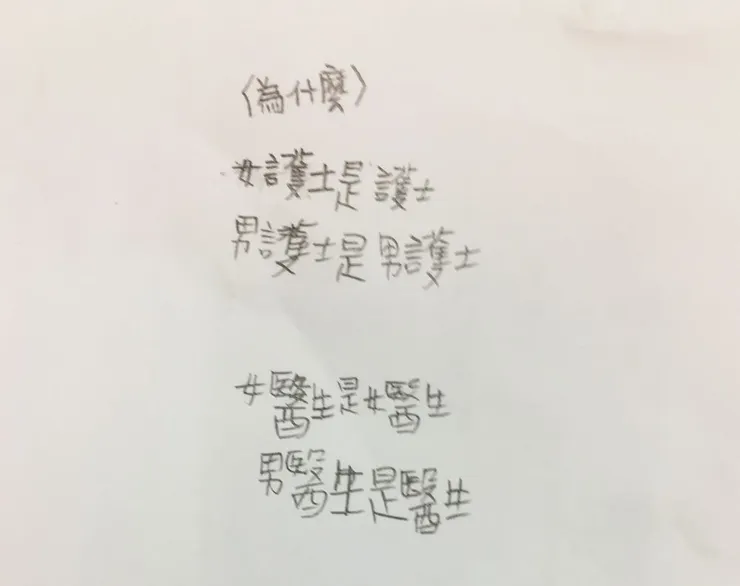 〈為什麼〉
女護士是護士
男護士是男護士
女醫生是女醫生
男醫生是醫生